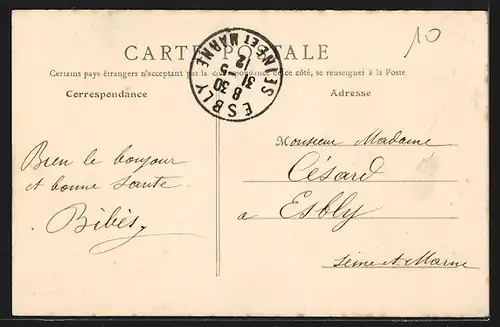 10
CARTE POSTALE
Certains pays étrangers n'acceptant pas la correspondance de ce côté, se renseigner à la Poste
Correspondance
Adresse
ESBLY SEINE ET MARNE
8 30
31 5
12
Bien le bonjour
et bonne santé
Bibès
Monsieur Madame
Césard
a Esbly
Seine et Marne